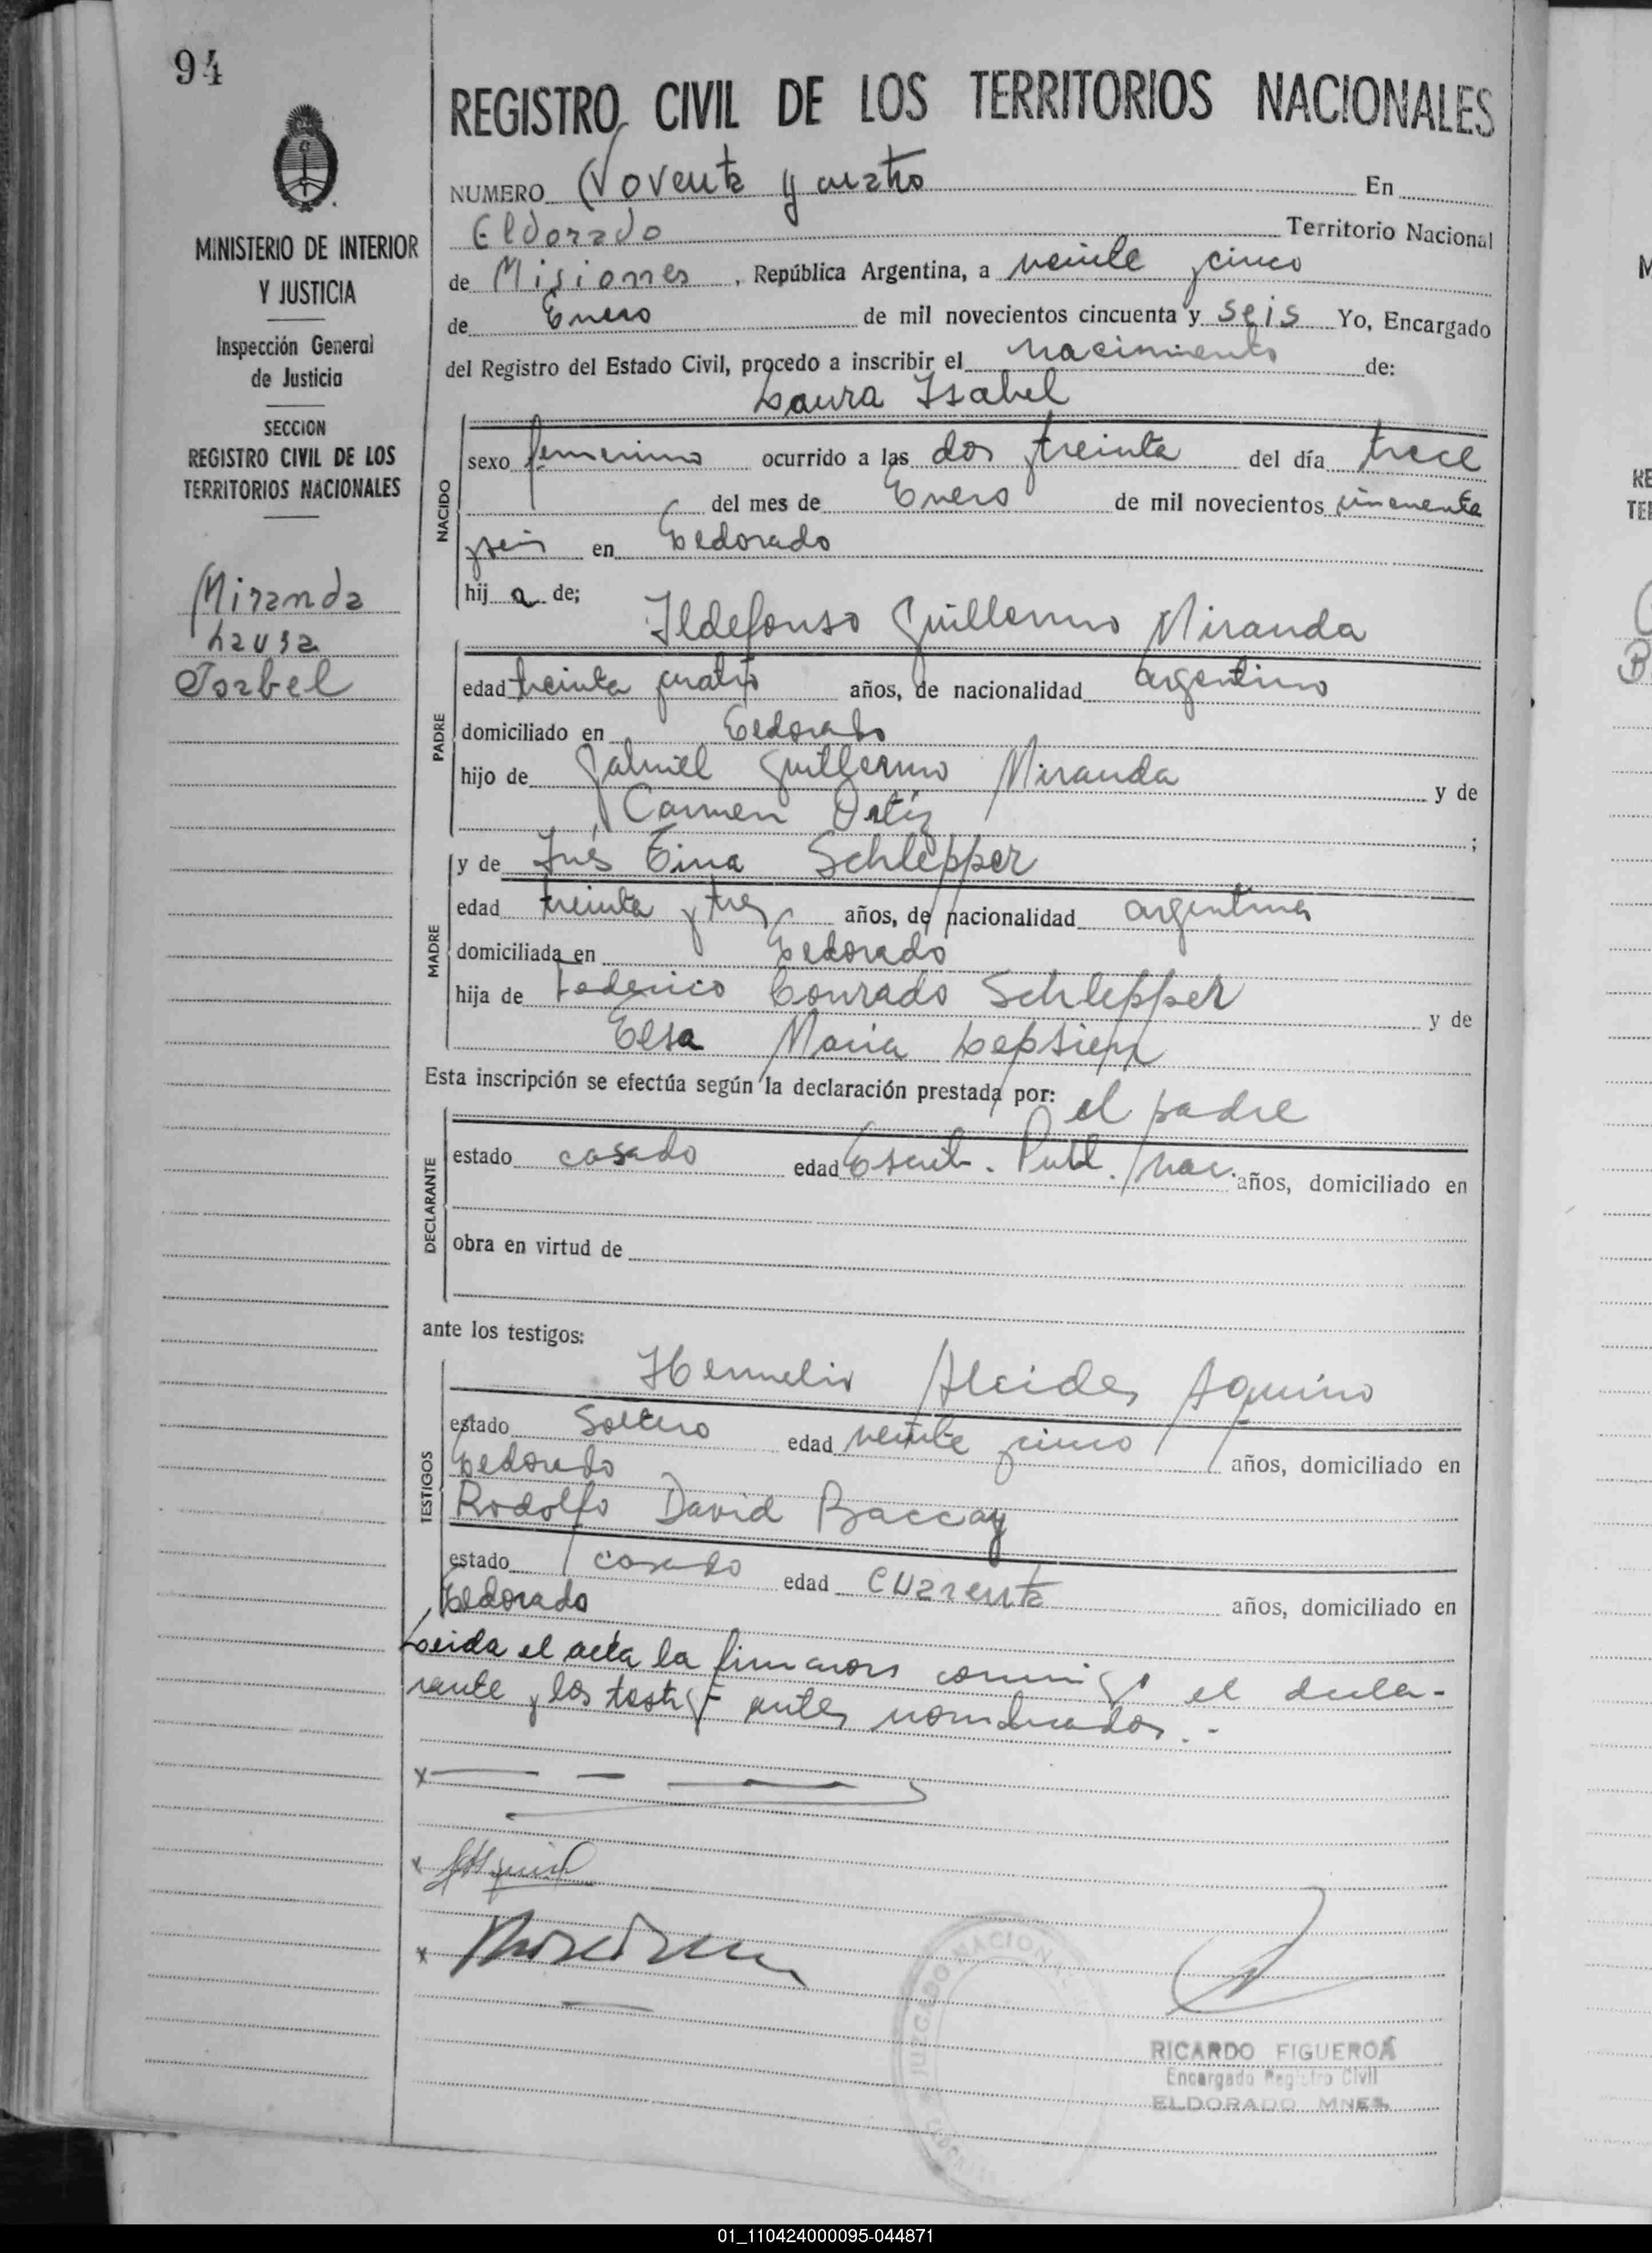 94
REGISTRO CIVIL DE LOS TERRITORIOS NACIONALES
NUMERO Noventa y cuatro En
Eldorado Territorio Nacional
de Misiones, República Argentina, a veinte y cinco
de Enero de mil novecientos cincuenta y seis Yo, Encargado
del Registro del Estado Civil, procedo a inscribir el nacimiento de:
Laura Isabel
MINISTERIO DE INTERIOR
Y JUSTICIA
Inspección General
de Justicia
SECCION
REGISTRO CIVIL DE LOS
TERRITORIOS NACIONALES
Miranda
Laura
Isabel
NACIDO
sexo femenino ocurrido a las dos y treinta del día trece
del mes de Enero de mil novecientos cincuenta
y seis en Eldorado
hij a de;
Ildefonso Guillermo Miranda
PADRE
edad treinta y cuatro años, de nacionalidad argentino
domiciliado en Eldorado
hijo de Gabriel Guillermo Miranda y de
Carmen Ortiz ;
y de Inés Schlepper
MADRE
edad treinta y tres años, de nacionalidad argentina
domiciliada en Eldorado
hija de Federico Conrado Schlepper y de
Elsa Maria Lepsien
Esta inscripción se efectúa según la declaración prestada por: el padre
DECLARANTE
estado casado edad Escrib. Publ. Nac. años, domiciliado en
obra en virtud de
ante los testigos:
Alcides Aquino
TESTIGOS
estado Soltero edad veinte y cinco años, domiciliado en
Eldorado
Rodolfo David Baccay
estado casado edad cuarenta años, domiciliado en
Eldorado
Leida el acta la firmaron conmigo el decla-
rante y los testig antes nombrados.-
x
x
x
JUZGADO NACIONAL
RICARDO FIGUEROA
Encargado Registro Civil
ELDORADO MNES.
01_110424000095-044871